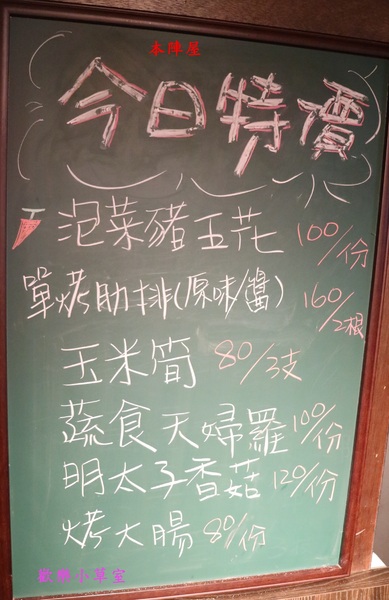 本陣屋
今日特價
泡菜豬五花 100/份
單烤肋排(原味/醬) 160/2根
玉米筍 80/3支
蔬食天婦羅 100/份
明太子香菇 120/份
烤大腸 80/份
歡樂小草室